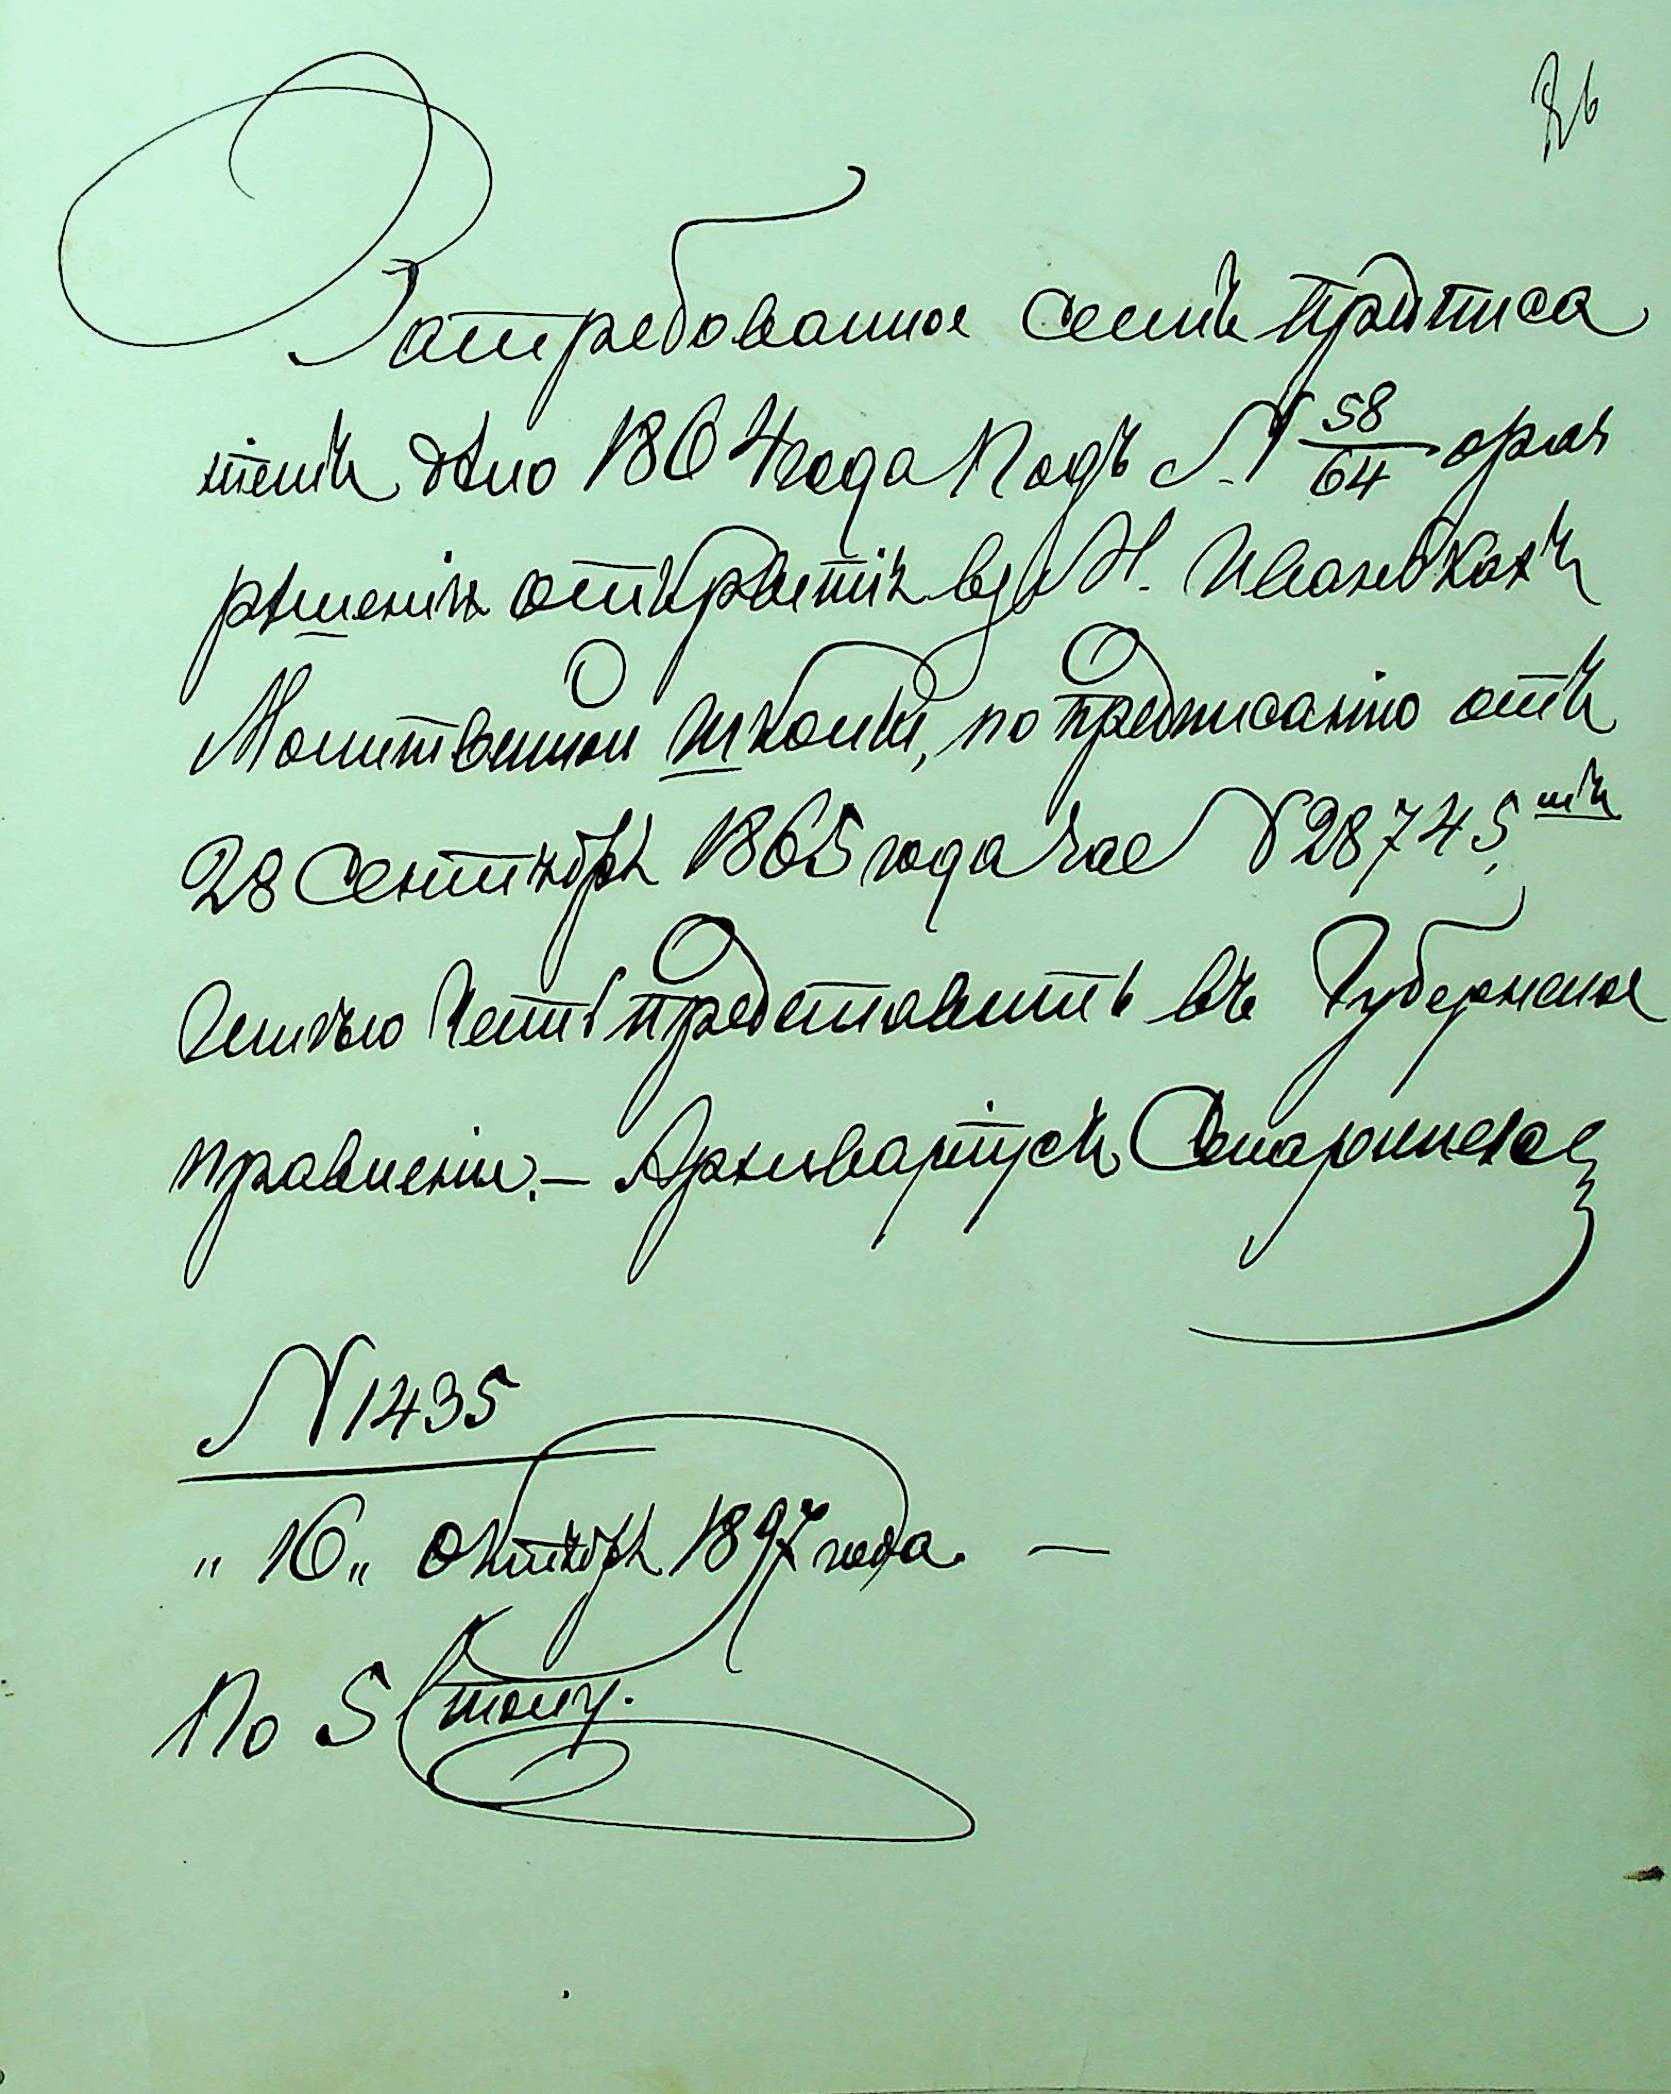 Затребованное симъ предписа
ніемъ дѣло 1864 года подъ № 58/64 о раз
рѣшеніи открытія въ д. Н. Ивановкахъ
Молитвенной школы, по предписанію отъ
28 Сентября 1865 года за № 28745,
честь представить въ Губернское
правленіе. — Архиваріусъ
№ 1435
„ 16 „ Октября 1897 года. —
По 5 столу.